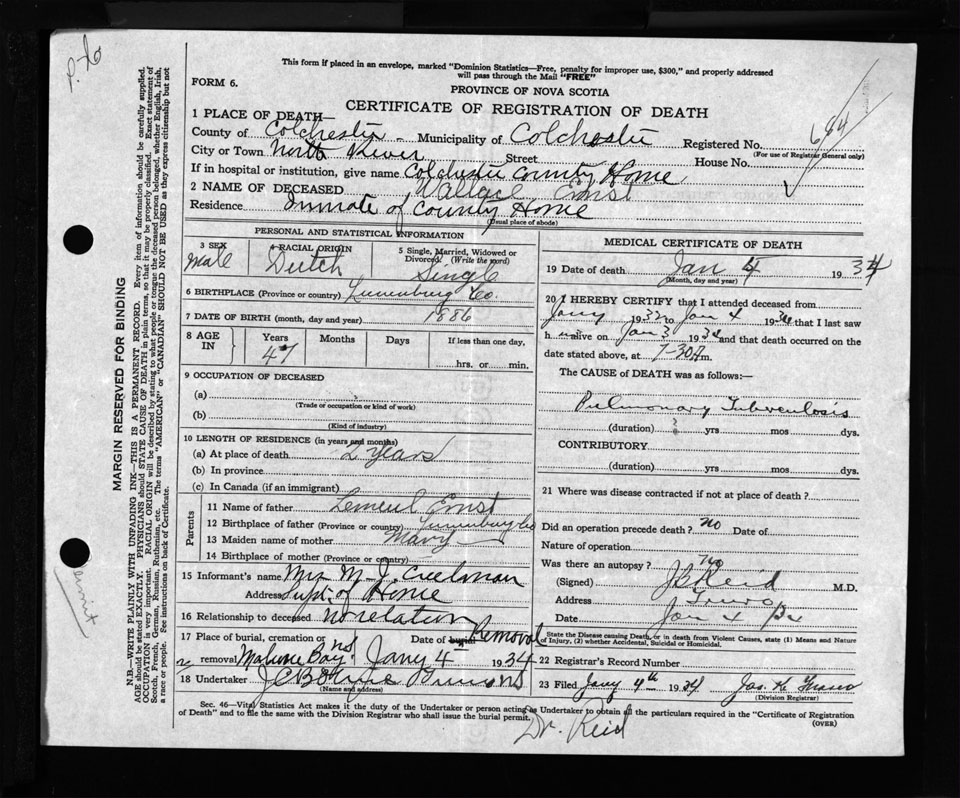 P. 26
This form if placed in an envelope, marked "Dominion Statistics—Free, penalty for improper use, $300," and properly addressed
will pass through the Mail "FREE"
FORM 6.
PROVINCE OF NOVA SCOTIA
CERTIFICATE OF REGISTRATION OF DEATH
1 PLACE OF DEATH—
County of Colchester - Municipality of Colchester Registered No. 684
(For use of Registrar General only)
City or Town North River Street House No.
If in hospital or institution, give name Colchester County Home
2 NAME OF DECEASED Wallace Ernst
Residence Inmate of County Home
(Usual place of abode)
PERSONAL AND STATISTICAL INFORMATION
3 SEX Male 4 RACIAL ORIGIN Dutch 5 Single, Married, Widowed or Divorced (Write the word) Single
6 BIRTHPLACE (Province or country) Lunenburg Co.
7 DATE OF BIRTH (month, day and year) 1886
8 AGE IN Years 47 Months Days If less than one day, hrs. or min.
9 OCCUPATION OF DECEASED
(a)
(Trade or occupation or kind of work)
(b)
(Kind of industry)
10 LENGTH OF RESIDENCE (in years and months)
(a) At place of death 2 years
(b) In province
(c) In Canada (if an immigrant)
Parents
11 Name of father Lemeul Ernst
12 Birthplace of father (Province or country) Lunenburg Co
13 Maiden name of mother Mary
14 Birthplace of mother (Province or country)
15 Informant's name Mrs M. J. Creelman
Address Supt. of Home
16 Relationship to deceased no relation
17 Place of burial, cremation or Date of burial Removal
removal Mahone Bay NS Jany 4 1934
18 Undertaker
(Name and address)
MEDICAL CERTIFICATE OF DEATH
19 Date of death Jan 4 1934
(Month, day and year)
20 I HEREBY CERTIFY that I attended deceased from
Jany 1932 to Jan 4 1934 that I last saw
h alive on Jan 3 1934 and that death occurred on the
date stated above, at 7-30 A m.
The CAUSE of DEATH was as follows:—
Pulmonary Tuberculosis
(duration) ? yrs mos dys.
CONTRIBUTORY
(duration) yrs mos dys.
21 Where was disease contracted if not at place of death?
Did an operation precede death? no Date of
Nature of operation
Was there an autopsy? no
(Signed) J B Reid M.D.
Address Truro
Date Jan 4
State the Disease causing Death, or in death from Violent Causes, state (1) Means and Nature
of Injury, (2) whether Accidental, Suicidal or Homicidal.
22 Registrar's Record Number
23 Filed Jany 4th 1934 Jas. K
(Division Registrar)
Sec. 46—Vital Statistics Act makes it the duty of the Undertaker or person acting as Undertaker to obtain all the particulars required in the "Certificate of Registration
of Death" and to file the same with the Division Registrar who shall issue the burial permit.
(OVER)
Dr. Reid
MARGIN RESERVED FOR BINDING
N.B.—WRITE PLAINLY WITH UNFADING INK—THIS IS A PERMANENT RECORD. Every item of information should be carefully supplied.
AGE should be stated EXACTLY. PHYSICIANS should STATE CAUSE OF DEATH in plain terms, so that it may be properly classified. Exact statement of
OCCUPATION is very important. RACIAL ORIGIN will be described by stating to what people or tongue the deceased person belonged, whether English, Irish,
Scotch, French, German, Russian, Ruthenian, etc. The terms "AMERICAN" or "CANADIAN" SHOULD NOT BE USED as they express citizenship but not
a race or people. See instructions on back of Certificate.